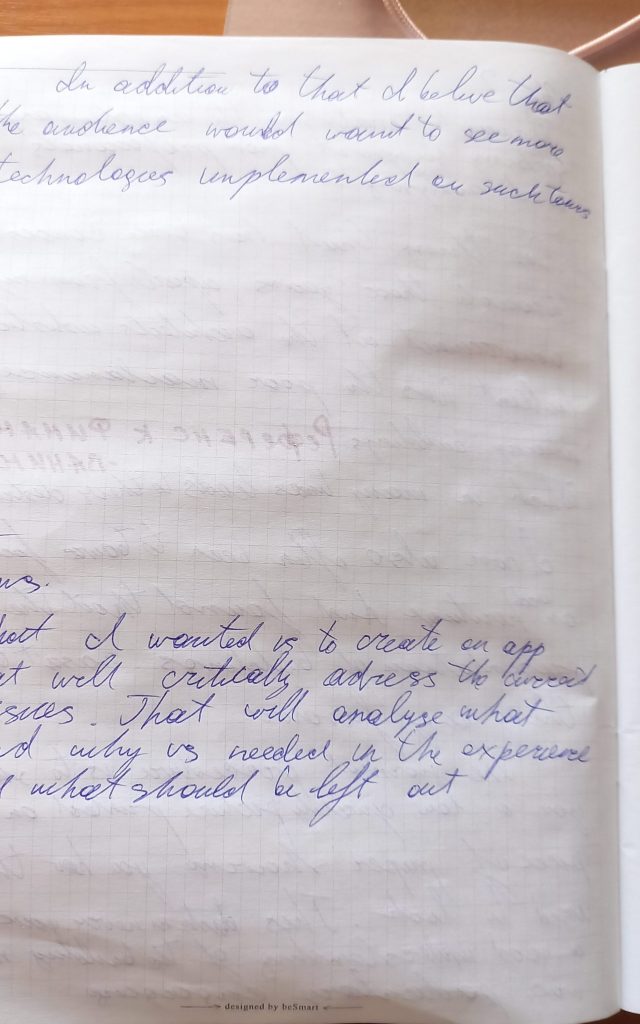 In addition to that I believe that
the audience would want to see more
technologies implemented on such tours
ns.
hat I wanted is to create an app
at will critically adress the current
issues. That will analyse what
nd why is needed in the experience
d what should be left out
designed by beSmart